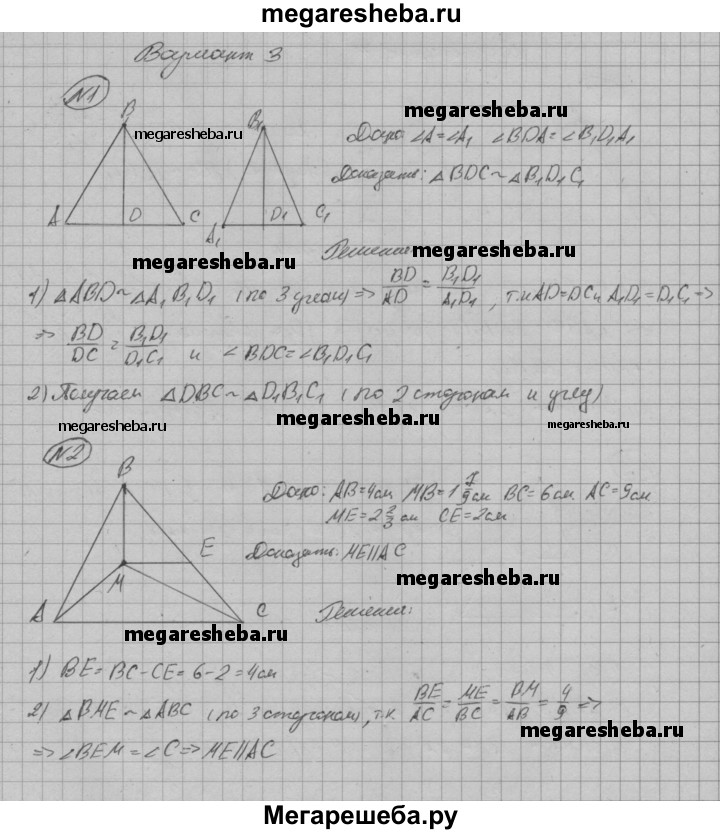 megaresheba.ru
Вариант 3
№1
B
B₁
megaresheba.ru
megaresheba.ru
Дано: ∠A=∠A₁ ∠BDA=∠B₁D₁A₁
Доказать: △BDC~△B₁D₁C₁
A D C A₁ D₁ C₁
megaresheba.ru
Решение
megaresheba.ru
1) △ABD~△A₁B₁D₁ (по 3 углам) => BD/AD = B₁D₁/A₁D₁, т.к AD=DC и A₁D₁=D₁C₁ =>
=> BD/DC = B₁D₁/D₁C₁ и ∠BDC=∠B₁D₁C₁
2) Получаем △DBC~△D₁B₁C₁ (по 2 сторонам и углу)
megaresheba.ru
megaresheba.ru
megaresheba.ru
№2
B
Дано: AB=4см MB=1 7/9 см BC=6см AC=9см
ME=2 2/3 см CE=2см
E
Доказать: ME||AC
M
megaresheba.ru
A C
Решение:
megaresheba.ru
1) BE=BC-CE=6-2=4см
2) △BME~△ABC (по 3 сторонам), т.к. BE/AC = ME/BC = BM/AB = 4/9 =>
megaresheba.ru
=> ∠BEM=∠C => ME||AC
Мегарешеба.ру